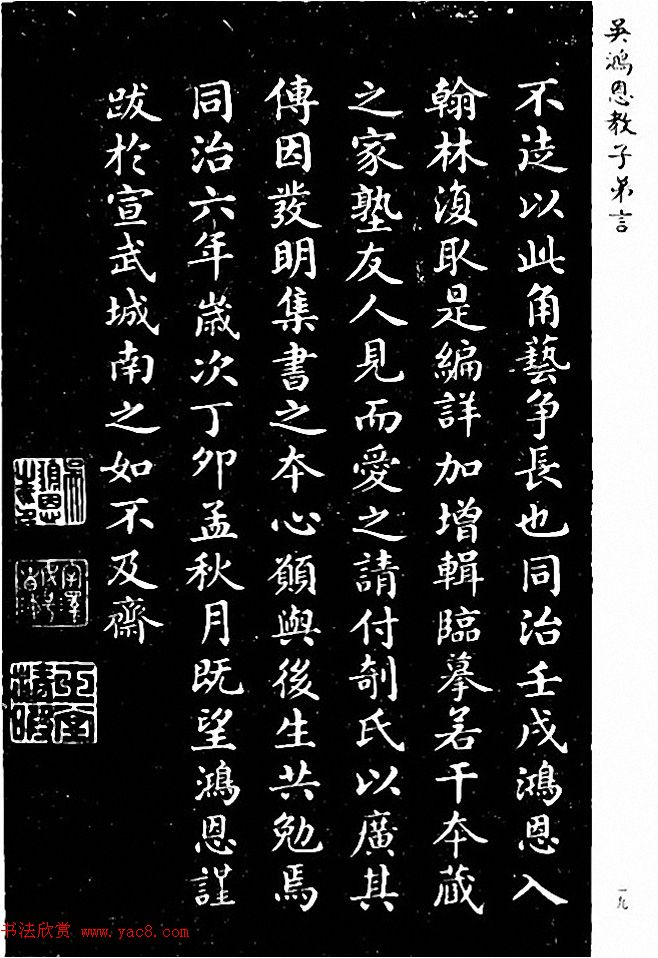 吴鴻恩教子弟言
不徒以此角藝争長也同治壬戌鴻恩入
翰林復取是編詳加增輯臨摹若干本藏
之家塾友人見而愛之請付剞氏以廣其
傳因發明集書之本心願與後生共勉焉
同治六年嵗次丁卯孟秋月既望鴻恩謹
跋於宣武城南之如不及齋
一九
书法欣赏 www.yac8.com